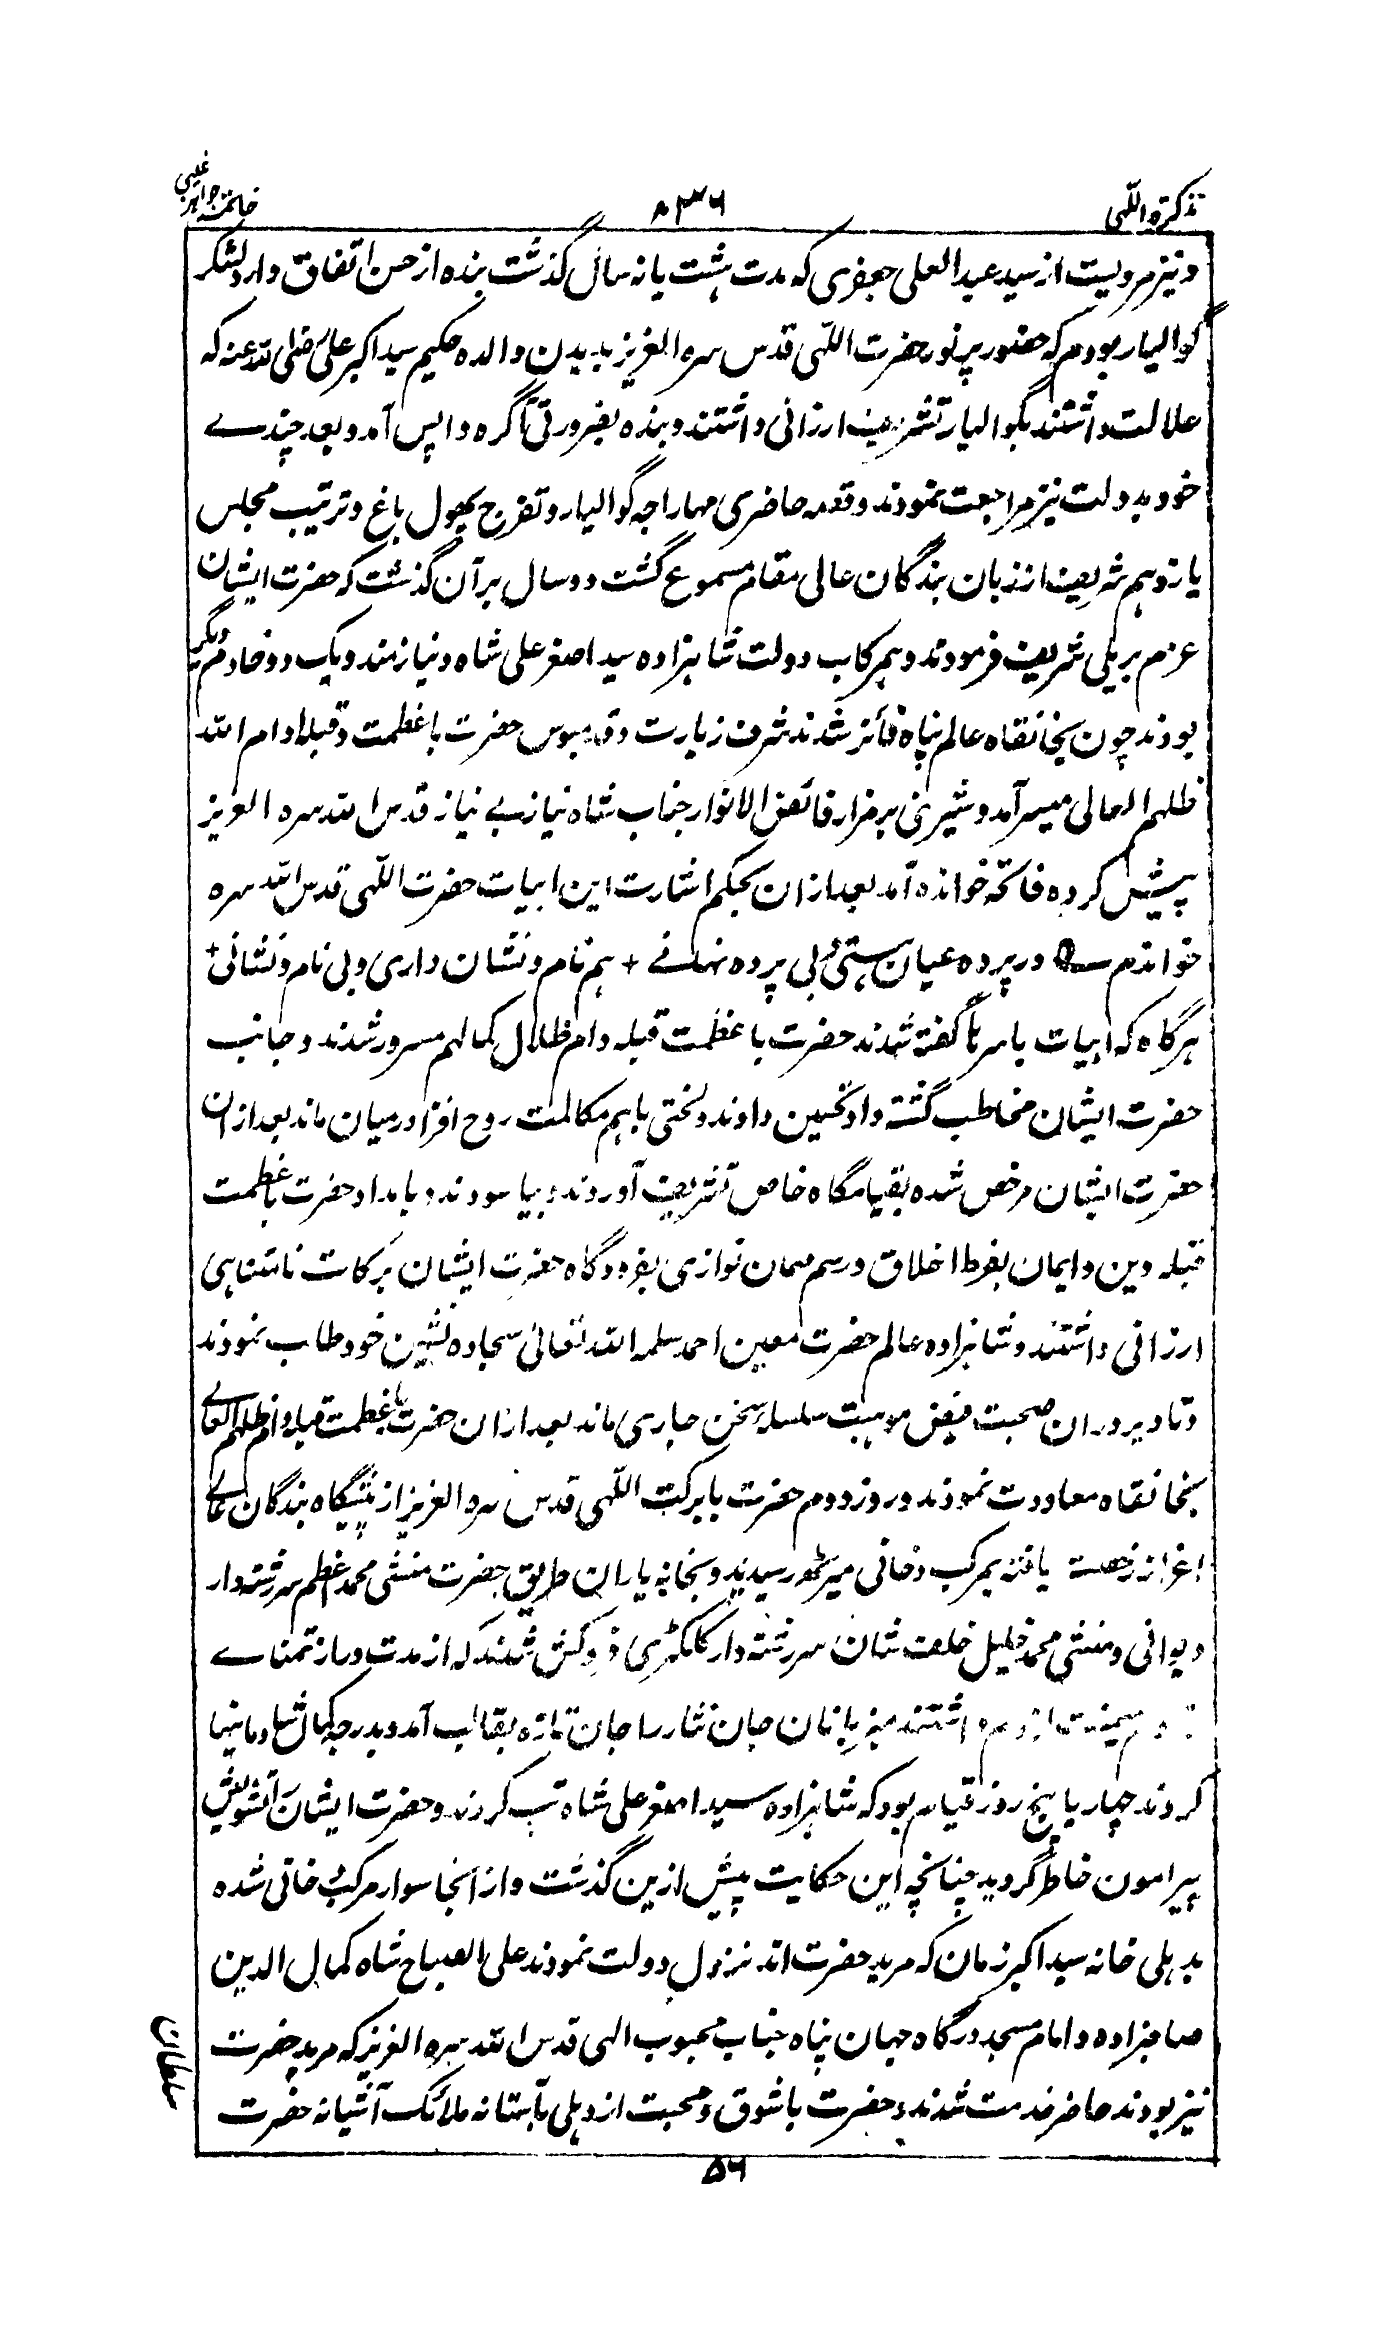 تذکرہ اللّہی
۸۳۶
خاتمۃ جواہر غیبی
و نیز مرویست از سید عبد العلی جعفری کہ مدت ہشت یا نہ سال گذشت بندہ از حسن اتفاق وارد لشکر
گوالیار بودم کہ حضور پر نور حضرت اللّہی قدس سرہ العزیز بدیدن والدہ حکیم سید اکبر علی رضی اللہ عنہ کہ
علالت داشتند بگوالیار تشریف ارزانی داشتند و بندہ بضرورتی بآگرہ واپس آمد و بعد چندے
خود بدولت نیز مراجعت نمودند و قصہ حاضری مہاراجہ گوالیار و تفرج پھول باغ و ترتیب مجلس
یازدہم شریف از زبان بندگان عالی مقام مسموع گشت دو سال بر آن گذشت کہ حضرت ایشان
عزم بریلی شریف فرمودند و ہمرکاب دولت شاہزادہ سید اصغر علی شاہ و نیازمند و یک دو خادم دیگر
بودند چون بخانقاہ عالم پناہ فائز شدند شرف زیارت و قدمبوس حضرت باعظمت و قبلہ ادام اللہ
ظلہم العالی میسر آمد و شیرینی بر مزار فائض الانوار جناب شاہ نیاز بے نیاز قدس اللہ سرہ العزیز
پیش کردہ فاتحہ خواندہ آمد بعد ازان بحکم اشارت این ابیات حضرت اللّہی قدس اللہ سرہ
خواندم ؎ در پردہ عیان ہستی و بی پردہ نہانے + ہم نام و نشان داری و بی نام و نشانی +
ہرگاہ کہ ابیات باسرہا گفتہ شدند حضرت باعظمت قبلہ دام ظلال کمالہم مسرور شدند و جانب
حضرت ایشان مخاطب گشتہ داد تحسین دادند و لختی باہم مکالمت روح افزا درمیان ماند بعد ازان
حضرت ایشان مرخص شدہ بقیامگاہ خاص تشریف آوردند و بیاسودند و بامداد حضرت باعظمت
قبلہ دین و ایمان بفرط اخلاق و رسم مہمان نوازی بفرودگاہ حضرت ایشان برکات نامتناہی
ارزانی داشتند و شاہزادہ عالم حضرت معین احمد سلمہ اللہ تعالیٰ سجادہ نشین خود طلب نمودند
و تا دیر دران صحبت فیض موہبت سلسلہ سخن جاری ماند بعد ازان حضرت باعظمت قبلہ دام ظلہم العالے
بخانقاہ معاودت نمودند و روز دوم حضرت بابرکت اللّہی قدس سرہ العزیز از پیشگاہ بندگان عالے
اعزاز رخصت یافتہ بمرکب دخانی میرٹھ رسیدند و بخانہ یاران طریق حضرت منشی محمد اعظم سررشتہ دار
دیوانی و منشی محمد خلیل خلف شان سررشتہ دار کلکٹری فروکش شدند کہ از مدت دراز تمناے
میزبانان جان نثار را جان تازہ بقالب آمد و بدرجہ کمال شادمانیہا
کردند چہار یا پنج روز قیام بود کہ شاہزادہ سید اصغر علی شاہ تب کردند و حضرت ایشان را تشویش
پیرامون خاطر گردید چنانچہ این حکایت پیش ازین گذشت و از آنجا سوار مرکب دخانی شدہ
بدہلی خانہ سید اکبر زمان کہ مرید حضرت اند نزول دولت نمودند علی الصباح شاہ کمال الدین
صاحبزادہ و امام مسجد درگاہ جہان پناہ جناب محبوب الہی قدس اللہ سرہ العزیز کہ مرید حضرت
نیز بودند حاضر خدمت شدند و حضرت با شوق و محبت از دہلی بآستانہ ملائک آشیانہ حضرت
سلطان
۵۶